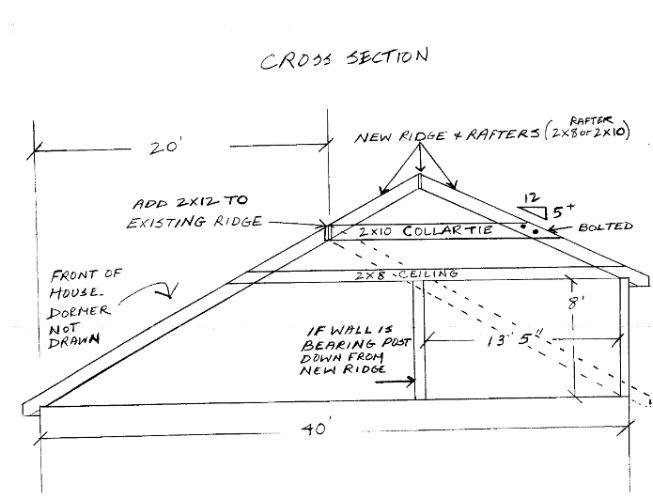 CROSS SECTION
20'
NEW RIDGE & RAFTERS (2X8 or 2X10)
RAFTER
ADD 2X12 TO
EXISTING RIDGE
12
5+
2X10 COLLARTIE
BOLTED
2X8-CEILING
FRONT OF
HOUSE.
DORMER
NOT
DRAWN
8'
IF WALL IS
BEARING POST
DOWN FROM
NEW RIDGE
13' 5"
40'